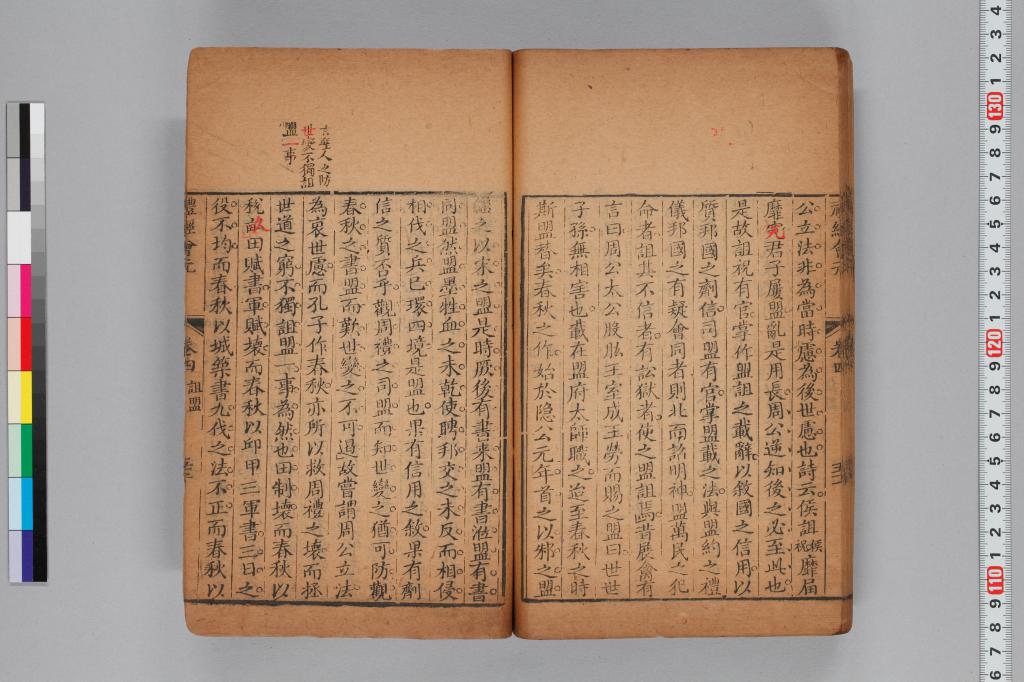 公立法非為當時慮為後世慮也詩云侯詛侯祝靡届
靡究君子屢盟亂是用長周公逆知後之必至此也
是故詛祝有官掌作盟詛之載辭以敘國之信用以
質邦國之劑信司盟有官掌盟載之法與盟約之禮
儀邦國之有疑會同者則北面詔明神盟萬民之犯
命者詛其不信者有訟獄者使之盟詛焉昔展禽有
言曰周公太公股肱王室成王勞而賜之盟曰世世
子孫無相害也載在盟府太師職之迨至春秋之時
斯盟替矣春秋之作始於隐公元年首之以邾之盟
繼之以宋之盟是時厥後有書来盟有書涖盟有書
同盟然盟墨牲血之未乾使聘邦交之未反而相侵
相伐之兵已環四境是盟也果有信用之敘果有劑
信之質否乎觀周禮之司盟而知世變之猶可防觀
春秋之書盟而歎世變之不可遏故嘗謂周公立法
為哀世慮而孔子作春秋亦所以救周禮之壞而拯
世道之窮不獨詛盟一事為然也田制壞而春秋以
稅畝田賦書軍賦壞而春秋以邱甲三軍書三日之
役不均而春秋以城築書九伐之法不正而春秋以
言聖人之防
世變不獨詛
盟一事
禮經會元
卷四
詛盟